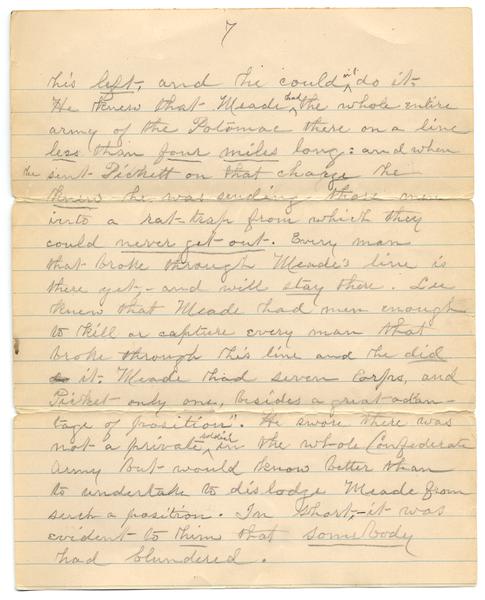 7
his left, and he could n't do it.
He knew that Meade had the whole entire
army of the Potomac there on a line
less than four miles long: and when
he sent Pickett on that charge he
knew he was sending those men
into a rat-trap from which they
could never get out. Every man
that broke through Meade's line is
there yet, and will stay there. Lee
knew that Meade had men enough
to kill or capture every man that
broke through his line and he did
it. Meade had seven Corps, and
Picket only one, besides a great advan-
tage of position". He swore there was
not a private soldier in the whole Confederate
Army but would know better than
to undertake to dislodge Meade from
such a position. In short, it was
evident to them that somebody
had blundered.